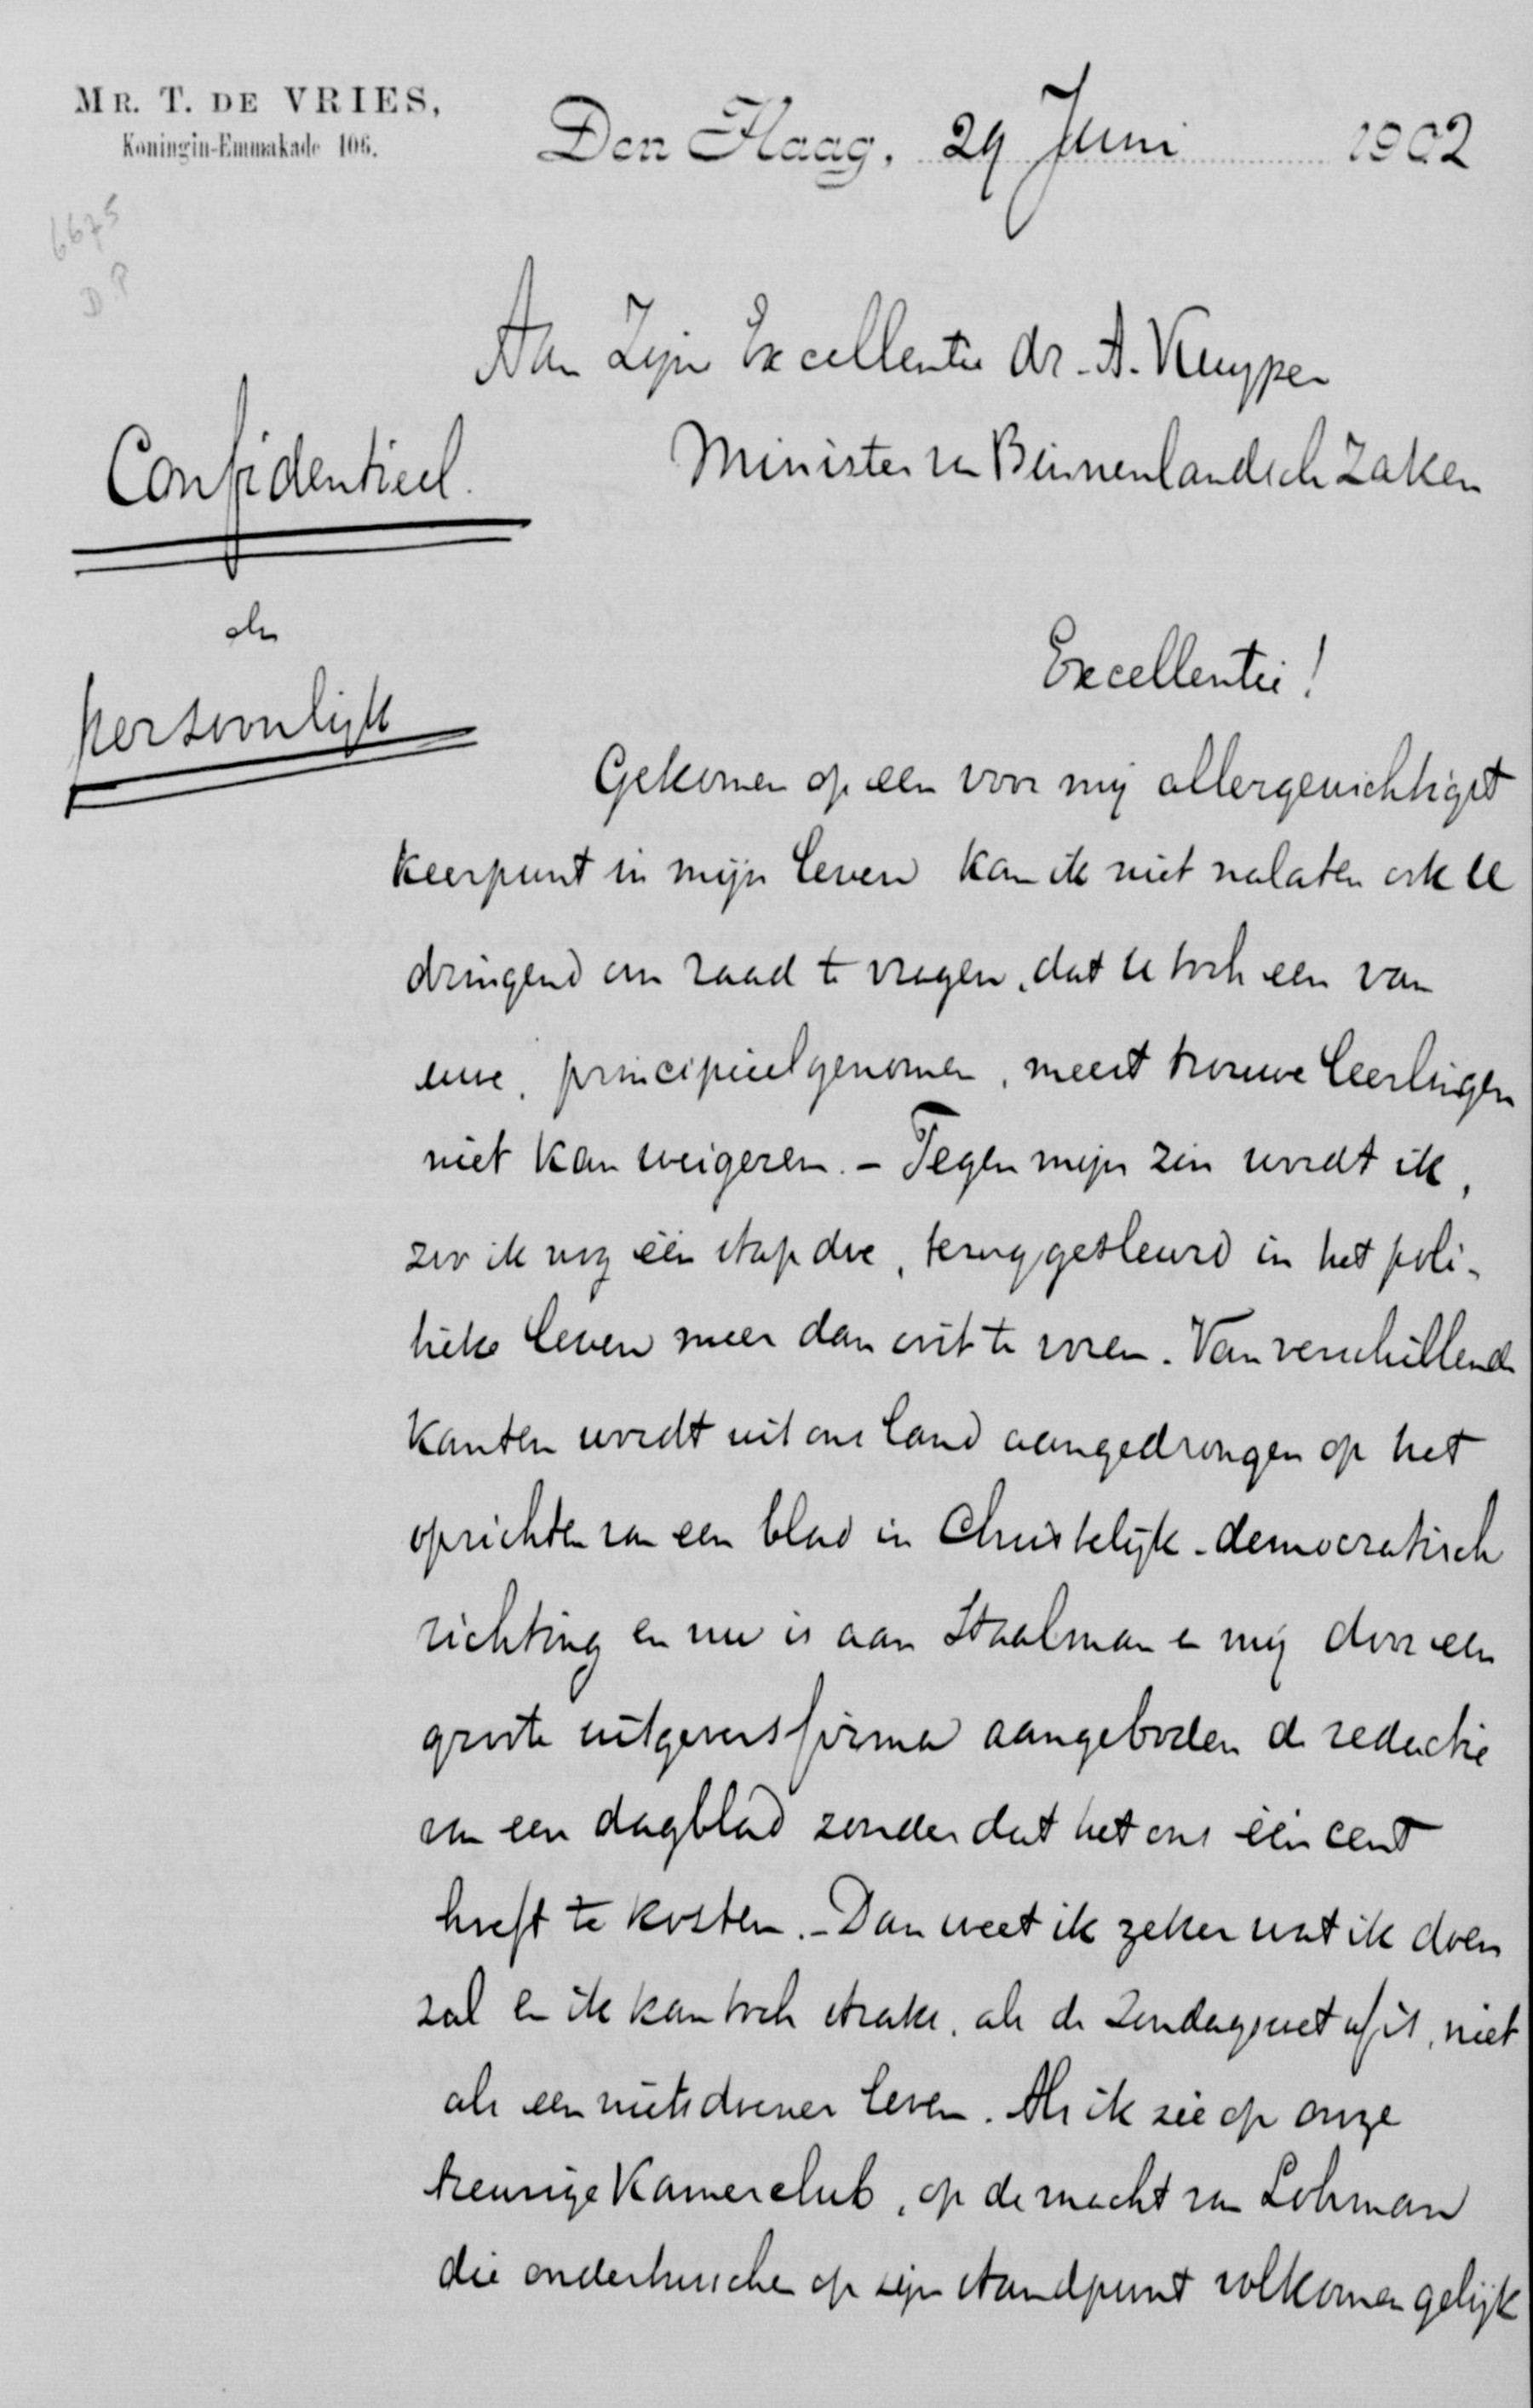 MR. T. DE VRIES,
Koningin-Emmakade 106.
Den Haag, 29 Juni 1902
6675
D P
Aan Zijn Excellentie dr. A. Kuyper
Minister van Binnenlandsch Zaken
Confidentieel.
en
persoonlijk
Excellentie!
Gekomen op een voor mij allergewichtigst
keerpunt in mijn leven kan ik niet nalaten ook U
dringend om raad te vragen, dat U toch een van
uwe, principieel genomen, meest trouwe leerlingen
niet kan weigeren. – Tegen mijn zin wordt ik,
zoo ik nog één stap doe, teruggesleurd in het poli-
tieke leven meer dan ooit te voren. Van verschillende
kanten wordt uit ons land aangedrongen op het
oprichten van een blad in Christelijk-democratisch
richting en nu is aan Staalman en mij door een
groote uitgeversfirma aangeboden de redactie
van een dagblad zonder dat het ons één cent
hoeft te kosten. – Dan weet ik zeker wat ik doen
zal en ik kan toch straks, als de Zondagswet af is, niet
als een nietsdoener leven. Als ik zie op onze
treurige Kamerclub, op de macht van Lohman
die ondertusschen op zijn standpunt volkomen gelijk